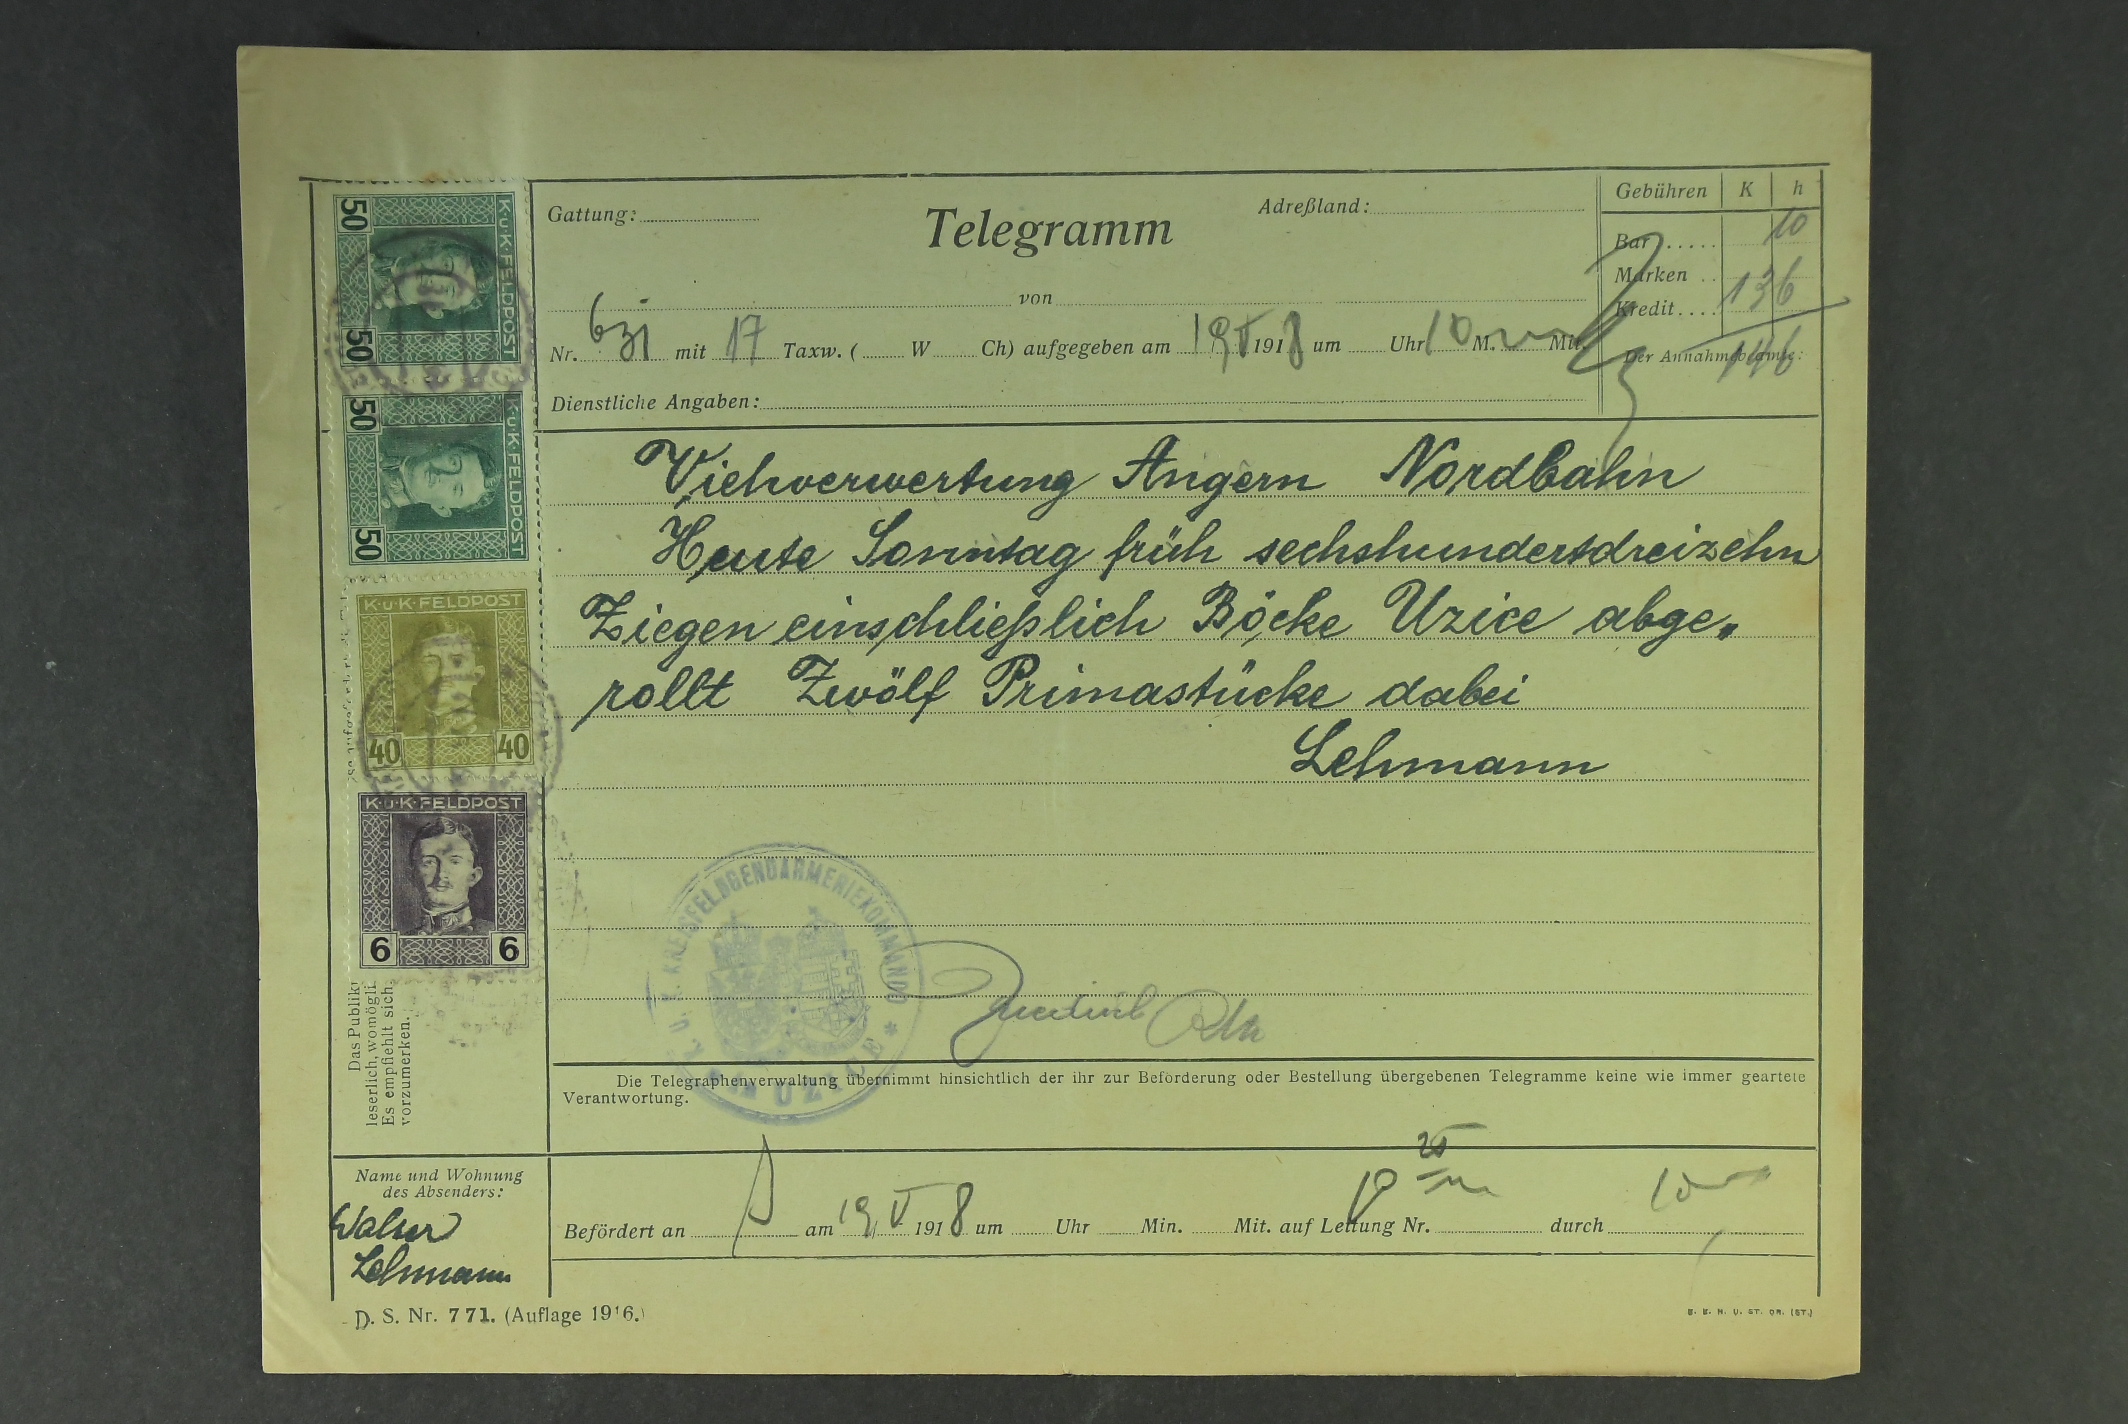 Gattung:
Telegramm
Adreßland:
Gebühren K h
Bar..... 10
Marken .. 136
Kredit....
146
von
Nr. 631 mit 17 Taxw. ( W Ch) aufgegeben am 19 V 1918 um Uhr 10 M. Mit.
Der Annahmebeamte:
Dienstliche Angaben:
Viehverwertung Angern Nordbahn
Heute Sonntag früh sechshundertdreizehn
Ziegen einschließlich Böcke Uzice abge„
rollt Zwölf Primastücke dabei
Lehmann
K.U.K. KREISFELDGENDARMERIEKOMMANDO * UZICE
Die Telegraphenverwaltung übernimmt hinsichtlich der ihr zur Beförderung oder Bestellung übergebenen Telegramme keine wie immer geartete
Verantwortung.
Befördert an am 19 V 1918 um Uhr Min. Mit. auf Leitung Nr. durch
10 25
50 K·u·K·FELDPOST 50
50 K·u·K·FELDPOST 50
K·u·K·FELDPOST
40 40
K·u·K·FELDPOST
6 6
Das Publik
leserlich, womögli
Es empfiehlt sich,
vorzumerken.
Name und Wohnung
des Absenders:
Walter
Lehmann
D. S. Nr. 771. (Auflage 1916.)